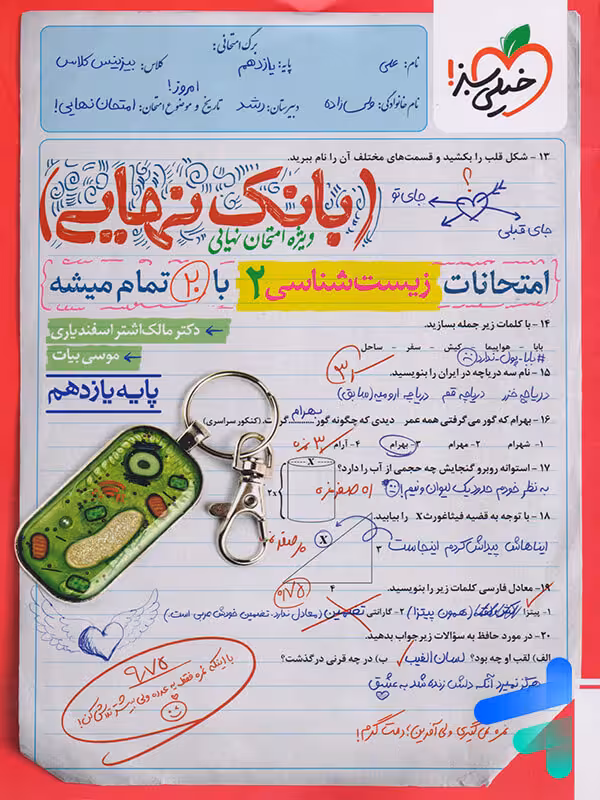 خیلی سبز!
برگ امتحانی:
نام: علی
پایه: یازدهم
کلاس: بیزینس کلاس
نام خانوادگی: ولی‌زاده
دبیرستان: رشد
تاریخ و موضوع امتحان: امروز! امتحان نهایی!
۱۳- شکل قلب را بکشید و قسمت‌های مختلف آن را نام ببرید.
؟
جای تو
جای قبلی
(بانک نهایی)
ویژه امتحان نهایی
امتحانات زیست‌شناسی ۲ با ۲۰ تمام میشه
دکتر مالک‌اشتر اسفندیاری
موسی بیات
پایه یازدهم
۱۴- با کلمات زیر جمله بسازید.
بابا - هواپیما - کیش - سفر - ساحل
#بابا-پول-ندارد
۱۵- نام سه دریاچه در ایران را بنویسید.
دریاچه خزر دریاچه قم دریاچه ارومیه (سابق)
۱۶- بهرام که گور می‌گرفتی همه عمر دیدی که چگونه گور بهرام گرفت. (کنکور سراسری)
۱- شهرام ۲- مهرام ۳- بهرام ۴- آرام
۱۷- استوانه روبرو گنجایش چه حجمی از آب را دارد؟
به نظر خودم حدود یک لیوان و نیم!
X
۲X
۱۸- با توجه به قضیه فیثاغورث X را بیابید.
ایناهاش پیداش کردم اینجاست
X
۳
۴
۱۹- معادل فارسی کلمات زیر را بنویسید.
۱- پیتزا (همون پیتزا) ۲- گارانتی تضمین (معادل ندارد. تضمین خودش عربی است)
۲۰- در مورد حافظ به سؤالات زیر جواب بدهید.
الف) لقب او چه بود؟ لسان الغیب ب) در چه قرنی درگذشت؟
هرگز نمیرد آنکه دلش زنده شد به عشق
۹/۷۵